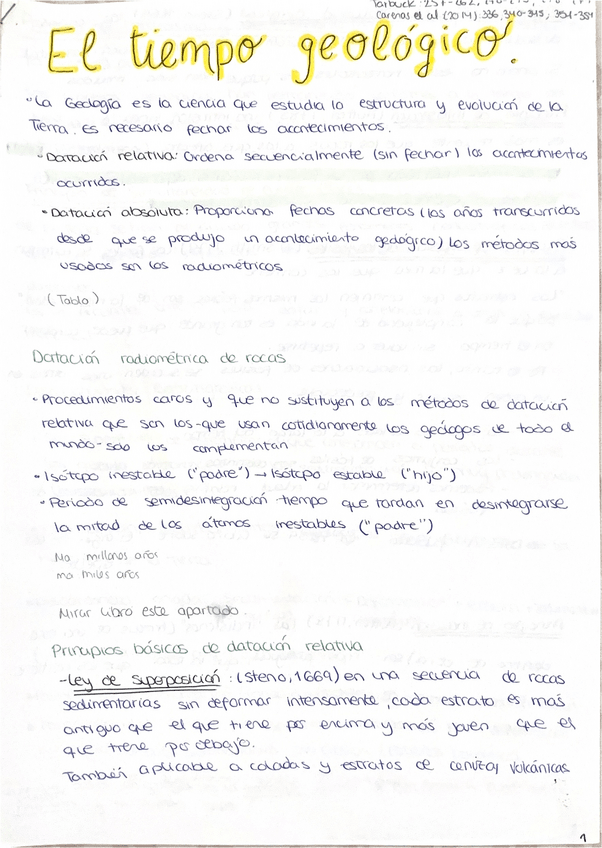 Tarbuck: 257-262,
Carenas et al (2014): 336, 340-345, 351-354
El tiempo geológico.
La Geología es la ciencia que estudia la estructura y evolución de la
Tierra. Es necesario fechar los acontecimientos.
• Datación relativa: Ordena secuencialmente (sin fechar) los acontecimientos
ocurridos.
• Datación absoluta: Proporciona fechas concretas (los años transcurridos
desde que se produjo un acontecimiento geológico) los métodos más
usados son los radiométricos
(Tabla)
Datación radiométrica de rocas
• Procedimientos caros y que no sustituyen a los métodos de datación
relativa que son los -que usan cotidianamente los geólogos de todo el
mundo- solo los complementan
• Isótopo inestable ("padre") → Isótopo estable ("hijo")
• Periodo de semidesintegración tiempo que tardan en desintegrarse
la mitad de los átomos inestables ("padre")
Ma millones años
ma miles años
Mirar libro este apartado.
Principios básicos de datación relativa
- Ley de superposición: (Steno, 1669) en una secuencia de rocas
sedimentarias sin deformar intensamente, cada estrato es más
antiguo que el que tiene por encima y más joven que el
que tiene por debajo.
También aplicable a coladas y estratos de cenizas volcánicas
1